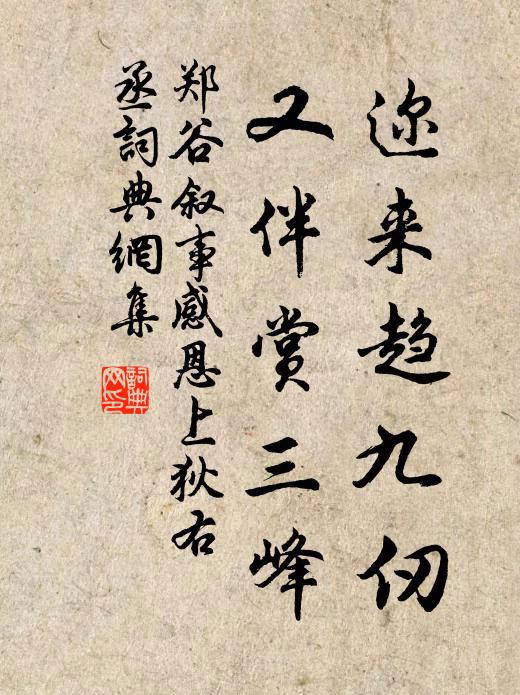 迩来趋九仞
又伴赏三峰
郑谷叙事感恩上狄右
丞詞典網集
詞典
网印